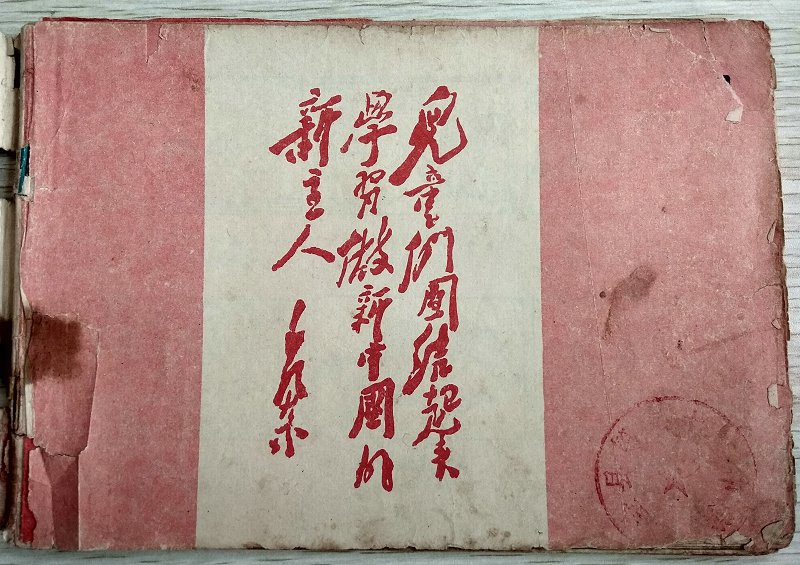 兒童們團結起來
學習做新中國的
新主人 毛澤東